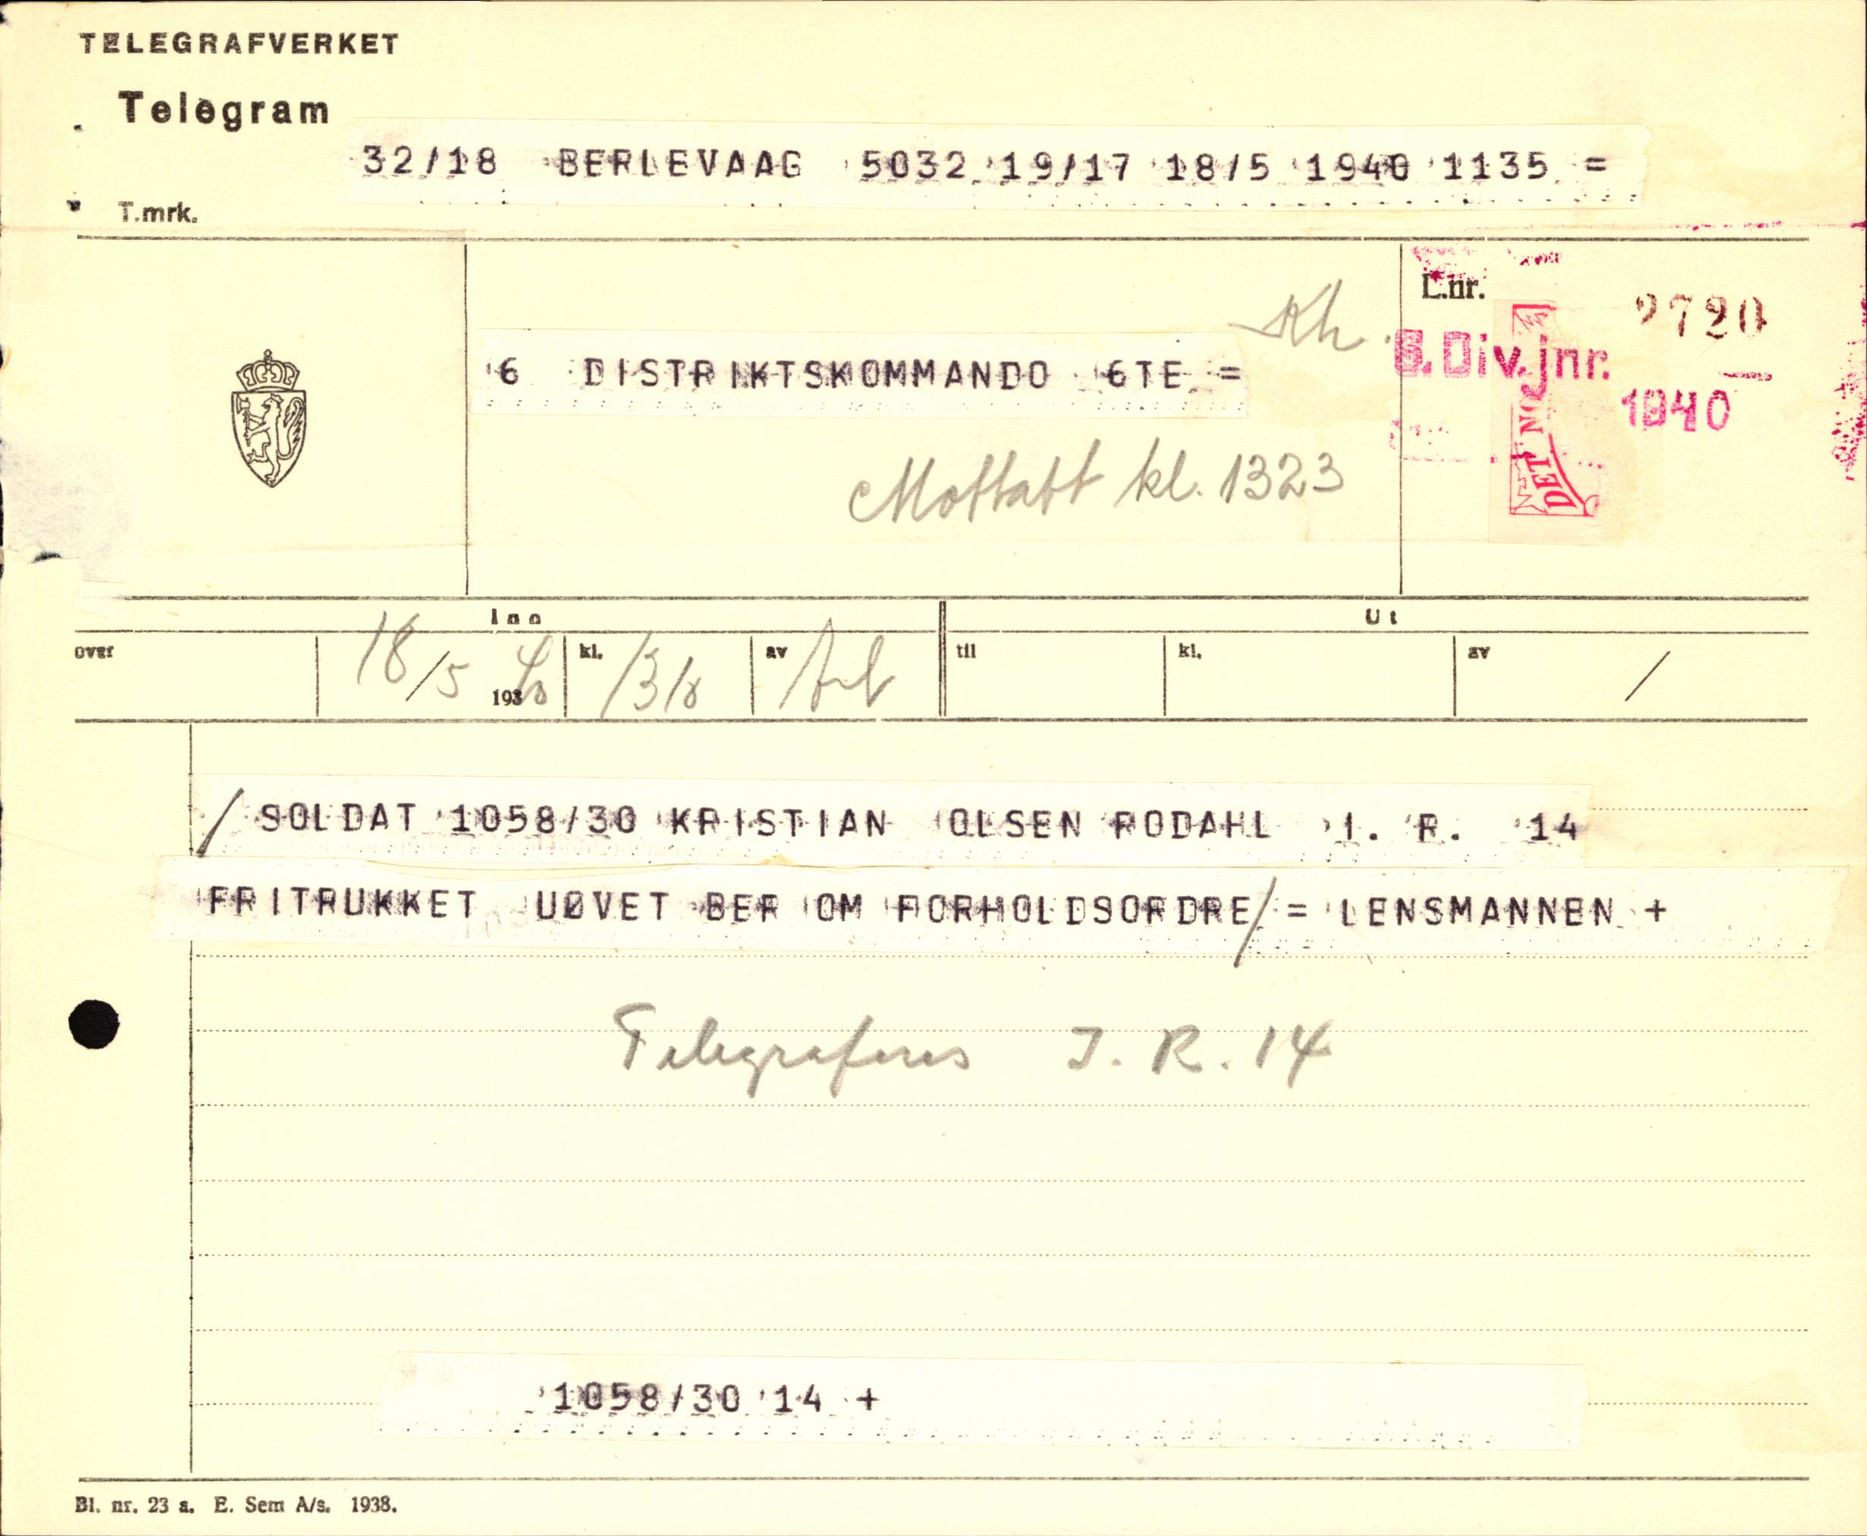 TELEGRAFVERKET
Telegram
32/18 BERLEVAAG 5032 19/17 18/5 1940 1135 =
T.mrk.
L.nr.
2720
Kh
6 DISTRIKTSKOMMANDO 6TE =
6. Div. jnr.
1940
DET N
Mottatt kl. 1323
Inn
Ut
over
18/5 1940
kl. 1318
av
til
kl.
av /
/ SOLDAT 1058/30 KRISTIAN OLSEN RODAHL I. R. 14
FRITRUKKET UØVET BER OM FORHOLDSORDRE / = LENSMANNEN +
Telegraferes I. R. 14
1058/30 14 +
Bl. nr. 23 a. E. Sem A/s. 1938.